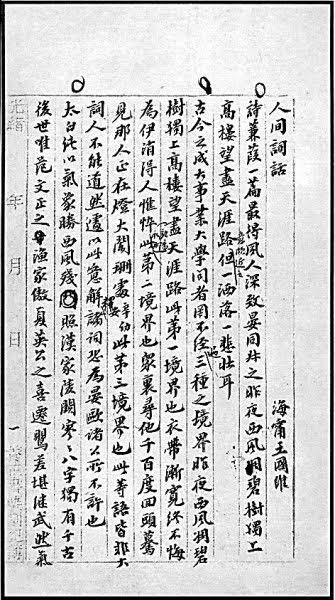 人间詞話 海甯王國維
詩蒹葭一篇最得風人深致晏同叔之昨夜西風凋碧樹獨上
高樓望盡天涯路意頗近之但一洒落一悲壯耳
古今之成大事業大學問者罔不經過三種之境界昨夜西風凋碧
樹獨上高樓望盡天涯路此第一境界也衣帶漸寬終不悔
為伊消得人憔悴此第二境界也眾裏尋他千百度回頭驀
見那人正在燈火闌珊處辛幼安此第三境界也此等語皆非大
詞人不能道然遽以此意解諸詞恐為晏歐諸公所不許也
太白純以氣象勝西風殘照漢家陵闕寥〻八字獨有千古
後世唯范文正之漁家傲夏英公之喜遷鶯差堪繼武然氣
光緒 年 月 日 一